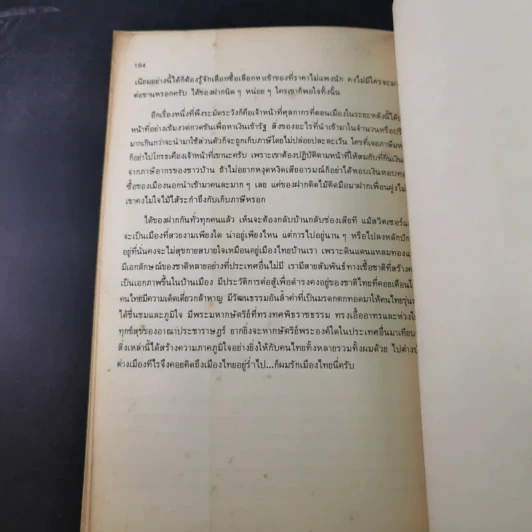 184
เนียมอย่างนี้ได้ก็ต้องรู้จักเลือกซื้อเลือกหาเข้าของที่ราคาไม่แพงนัก คงไม่มีใครจะมา
ต่อขานหรอกครับ ได้ของฝากนิด ๆ หน่อย ๆ ใครเขาก็พอใจทั้งนั้น
อีกเรื่องหนึ่งที่พึงระมัดระวังก็คือเจ้าหน้าที่ศุลกากรที่ดอนเมืองในระยะหลังนี้ได้
หน้าที่อย่างเข้มงวดกวดขันเพื่อหาเงินเข้ารัฐ สิ่งของอะไรที่นำเข้ามาในจำนวนหรือปริ
มากเกินกว่าจะนำมาใช้ส่วนตัวก็จะถูกเก็บภาษีโดยไม่ปล่อยปละละเว้น ใครที่เจอภาษีม
ก็อย่าไปโกรธเคืองเจ้าหน้าที่เขานะครับ เพราะเขาต้องปฏิบัติตามหน้าที่ให้สมกับที่กินเงิน
จากภาษีอากรของชาวบ้าน ถ้าไม่อยากหงุดหงิดเสียอารมณ์ก็อย่าได้หอบเงินหอบทอง
ซื้อของเมืองนอกนำเข้ามาคนละมาก ๆ เลย แค่ของฝากติดไม้ติดมือมาฝากเพื่อนฝูงไม่
เขาคงไม่ใจไม้ไส้ระกำถึงกับเก็บภาษีหรอก
ได้ของฝากกันทั่วทุกคนแล้ว เห็นจะต้องกลับบ้านกลับช่องเสียที แม้สวิตเซอร์แ
จะเป็นเมืองที่สวยงามเพียงใด น่าอยู่เพียงไหน แต่การไปอยู่นาน ๆ หรือไปลงหลักปัก
อยู่ที่นั่นคงจะไม่สุขกายสบายใจเหมือนอยู่เมืองไทยบ้านเรา เพราะดินแดนแหลมทองแ
มีเอกลักษณ์ของชาติหลายอย่างที่ประเทศอื่นไม่มี เรามีสายสัมพันธ์ทางเชื้อชาติที่สร้างค
เป็นเอกภาพขึ้นในบ้านเมือง มีประวัติการต่อสู้เพื่อดำรงคงอยู่ของชาติไทยที่คอยเตือนใ
คนไทยมีความเด็ดเดี่ยวกล้าหาญ มีวัฒนธรรมอันล้ำค่าที่เป็นมรดกตกทอดมาให้คนไทยรุ่นห
ได้ชื่นชมและภูมิใจ มีพระมหากษัตริย์ที่ทรงทศพิธราชธรรม ทรงเอื้ออาทรและห่วงใ
ทุกข์สุขของอาณาประชาราษฎร์ ยากยิ่งจะหากษัตริย์พระองค์ใดในประเทศอื่นมาเทียบ
สิ่งเหล่านี้ได้สร้างความภาคภูมิใจอย่างยิ่งให้กับคนไทยทั้งหลายรวมทั้งผมด้วย ไปต่างป
ต่างเมืองทีไรจึงคอยคิดถึงเมืองไทยอยู่ร่ำไป...ก็ผมรักเมืองไทยนี่ครับ